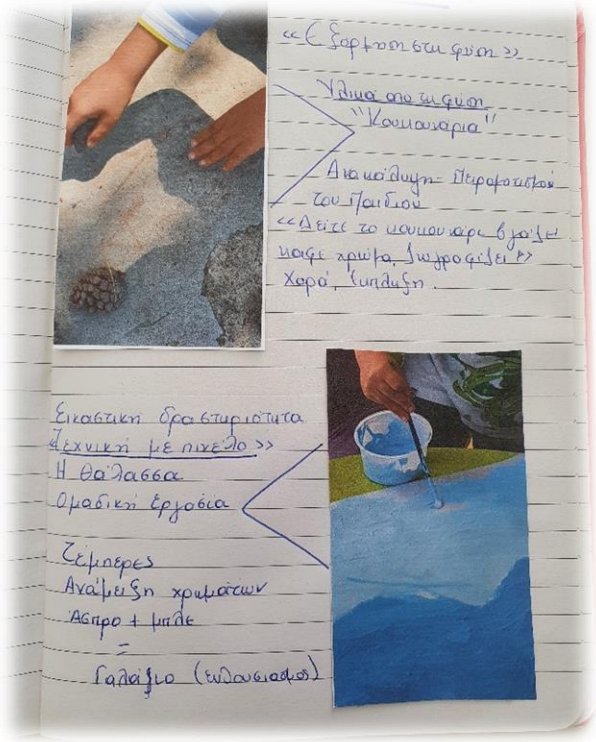 «Εξόρμηση στη φύση»
Υλικά από τη φύση
"Κουκουνάρια"
Ανακάλυψη - Πειραματισμός
του Παιδιού
«Δείτε το κουκουνάρι βγάζει
καφέ χρώμα, ζωγραφίζει»
Χαρά, έκπληξη.
Εικαστική δραστηριότητα
«Τεχνική με πινέλο»
Η θάλασσα
Ομαδική Εργασία
Τέμπερες
Ανάμειξη χρωμάτων
Άσπρο + μπλε
=
Γαλάζιο (ενθουσιασμός)